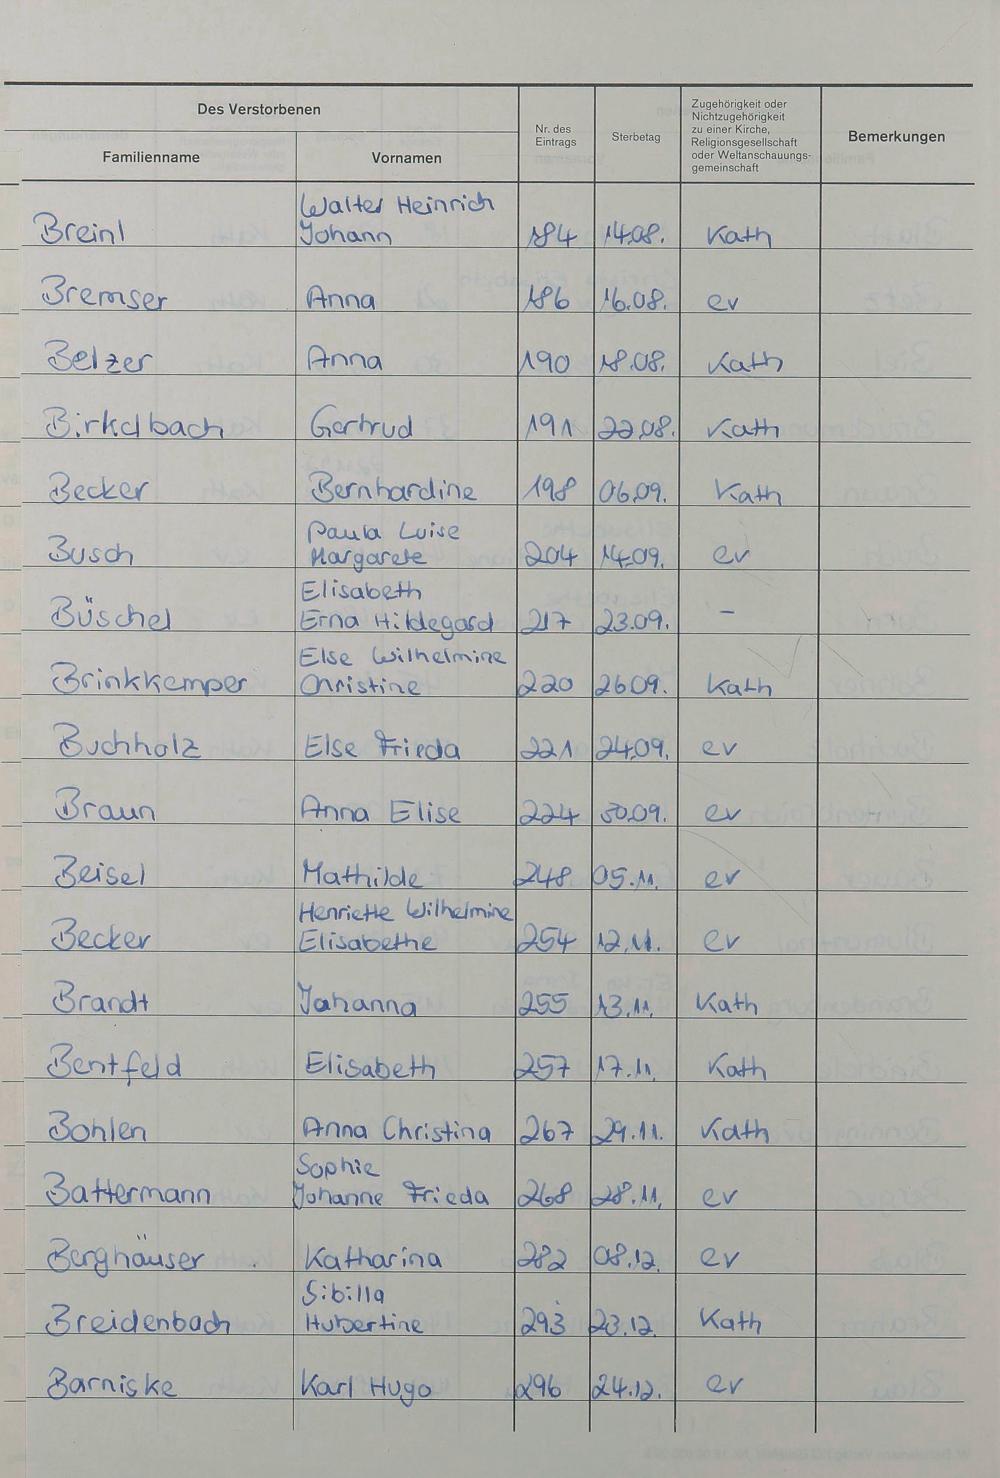 Des Verstorbenen
Familienname Vornamen Nr. des Eintrags Sterbetag Zugehörigkeit oder Nichtzugehörigkeit zu einer Kirche, Religionsgesellschaft oder Weltanschauungs- gemeinschaft Bemerkungen
Walter Heinrich
Breinl Johann 184 14.08. Kath
Bremser Anna 186 16.08. ev
Belzer Anna 190 18.08. Kath
Birkelbach Gertrud 191 22.08. Kath
Becker Bernhardine 198 06.09. Kath
Paula Luise
Busch Margarete 204 14.09. ev
Elisabeth
Büschel Erna Hildegard 217 23.09. –
Else Wilhelmine
Brinkkemper Christine 220 26.09. Kath
Buchholz Else Frieda 221 24.09. ev
Braun Anna Elise 224 30.09. ev
Beisel Mathilde 248 05.11. ev
Henriette Wilhelmine
Becker Elisabethe 254 12.11. ev
Brandt Johanna 255 13.11. Kath
Bentfeld Elisabeth 257 17.11. Kath
Bohlen Anna Christina 267 29.11. Kath
Sophie
Battermann Johanne Frieda 268 28.11. ev
Berghäuser Katharina 282 08.12. ev
Sibilla
Breidenbach Hubertine 293 23.12. Kath
Barniske Karl Hugo 296 24.12. ev